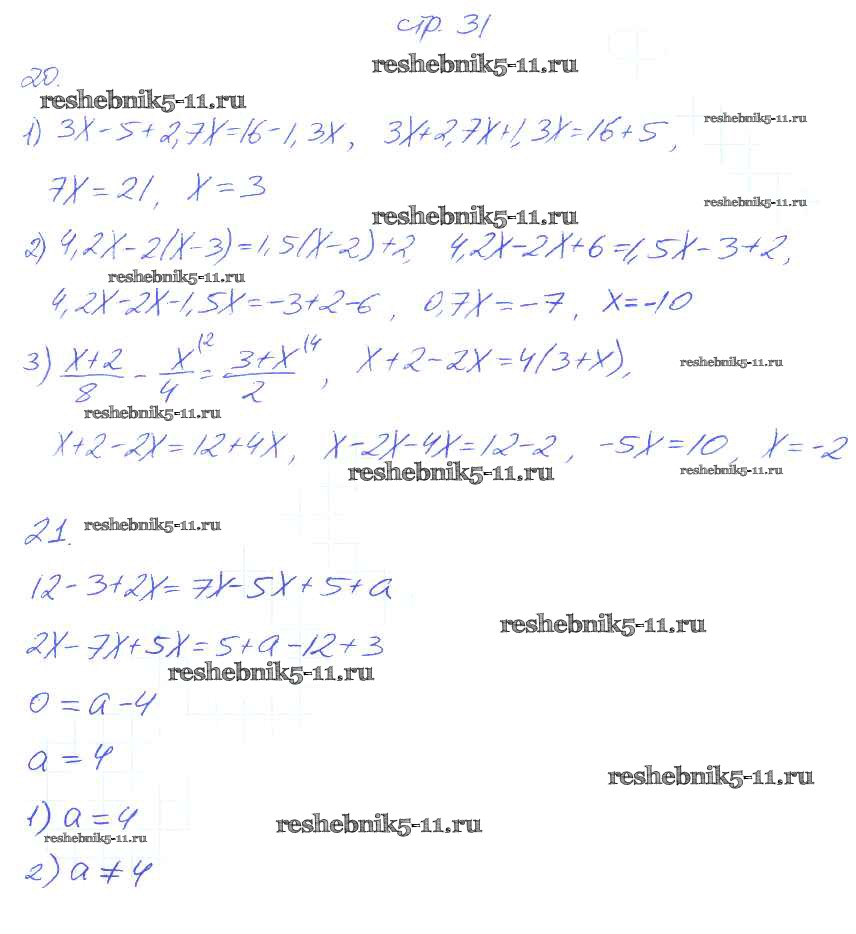 стр. 31
reshebnik5-11.ru
20.
reshebnik5-11.ru
1) 3x-5+2,7x=16-1,3x, 3x+2,7x+1,3x=16+5,
reshebnik5-11.ru
7x=21, x=3
reshebnik5-11.ru
reshebnik5-11.ru
2) 4,2x-2(x-3)=1,5(x-2)+2, 4,2x-2x+6=1,5x-3+2,
reshebnik5-11.ru
4,2x-2x-1,5x=-3+2-6, 0,7x=-7, x=-10
3) (x+2)/8 - x/4 (2 = (3+x)/2 (4, x+2-2x=4(3+x),
reshebnik5-11.ru
reshebnik5-11.ru
x+2-2x=12+4x, x-2x-4x=12-2, -5x=10, x=-2
reshebnik5-11.ru
reshebnik5-11.ru
21.
reshebnik5-11.ru
12-3+2x=7x-5x+5+a
reshebnik5-11.ru
2x-7x+5x=5+a-12+3
reshebnik5-11.ru
0=a-4
a=4
reshebnik5-11.ru
1) a=4
reshebnik5-11.ru
reshebnik5-11.ru
2) a≠4